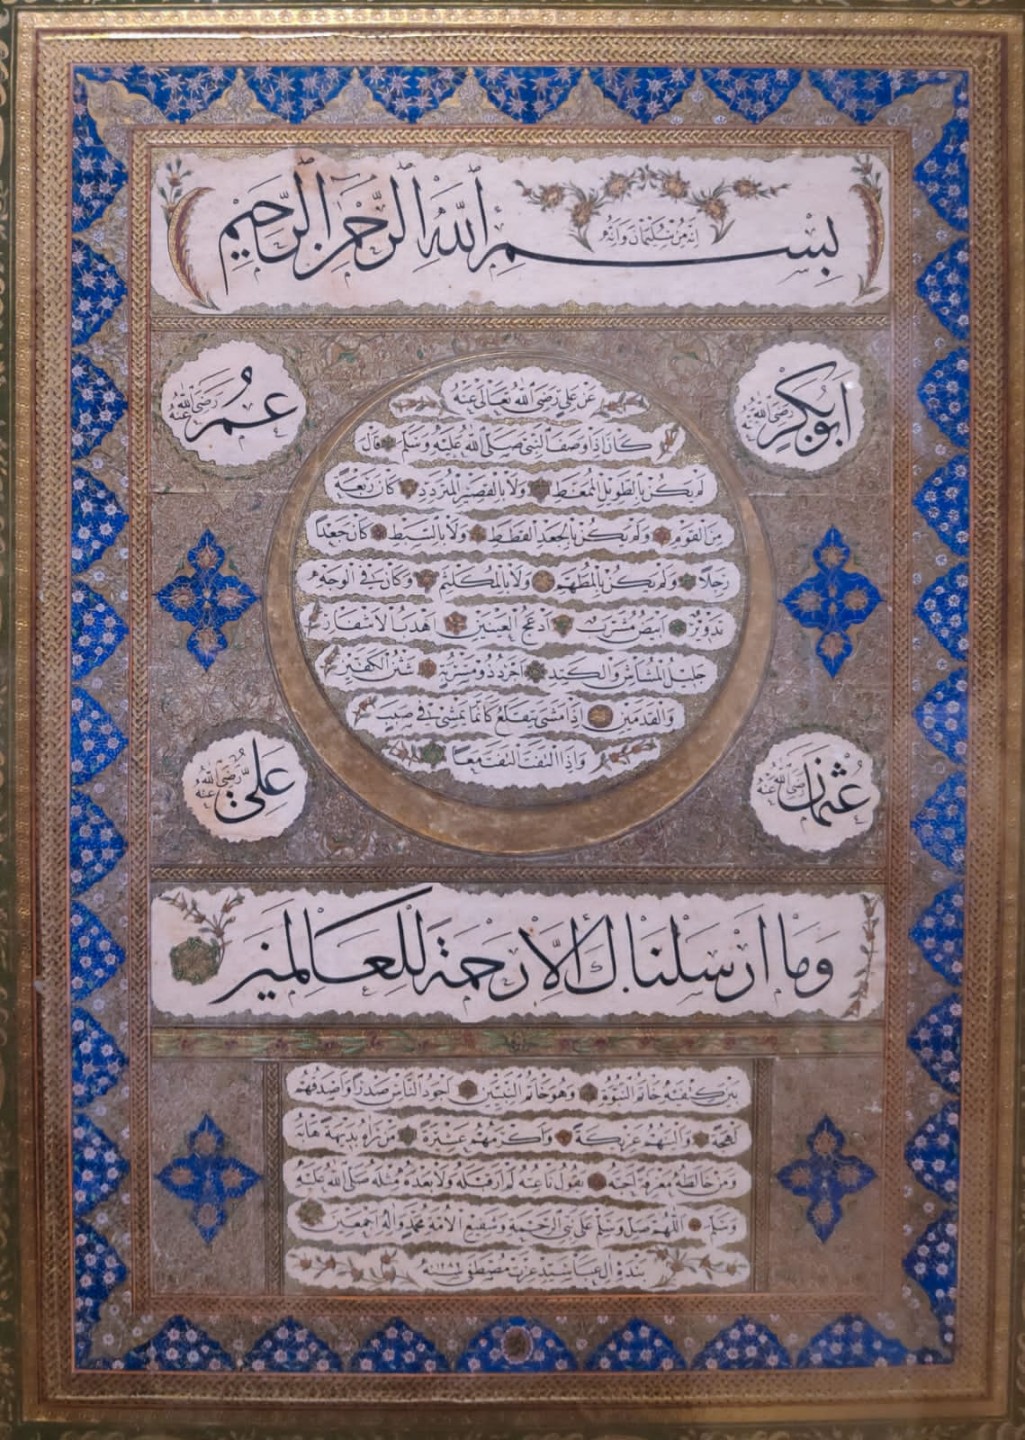 بسم الله الرحمن الرحيم
إنه من سليمان وإنه
ابوبكر رضي الله عنه
عمر رضي الله عنه
عن علي رضي الله تعالى عنه
كان إذا وصف النبي صلى الله عليه وسلم قال
لم يكن بالطويل الممغط ولا بالقصير المتردد كان ربعة
من القوم ولم يكن بالجعد القطط ولا بالسبط كان جعدا
رجلا ولم يكن بالمطهم ولا بالمكلثم وكان في الوجه
تدوير أبيض مشرب أدعج العينين أهدب الأشفار
جليل المشاش والكتد أجرد ذو مسربة شثن الكفين
والقدمين إذا مشى يتقلع كأنما يمشي في صبب
وإذا التفت التفت معا
عثمان رضي الله عنه
علي رضي الله عنه
وما ارسلناك الا رحمة للعالمين
بين كتفيه خاتم النبوة وهو خاتم النبيين أجود الناس صدرا وأصدقهم
لهجة وألينهم عريكة وأكرمهم عشيرة من رآه بديهة هابه
ومن خالطه معرفة أحبه يقول ناعته لم أر قبله ولا بعده مثله صلى الله عليه
وسلم اللهم صل وسلم على نبي الرحمة وشفيع الأمة محمد وآله أجمعين
بندۀ آل عبا سيد عزت مصطفى